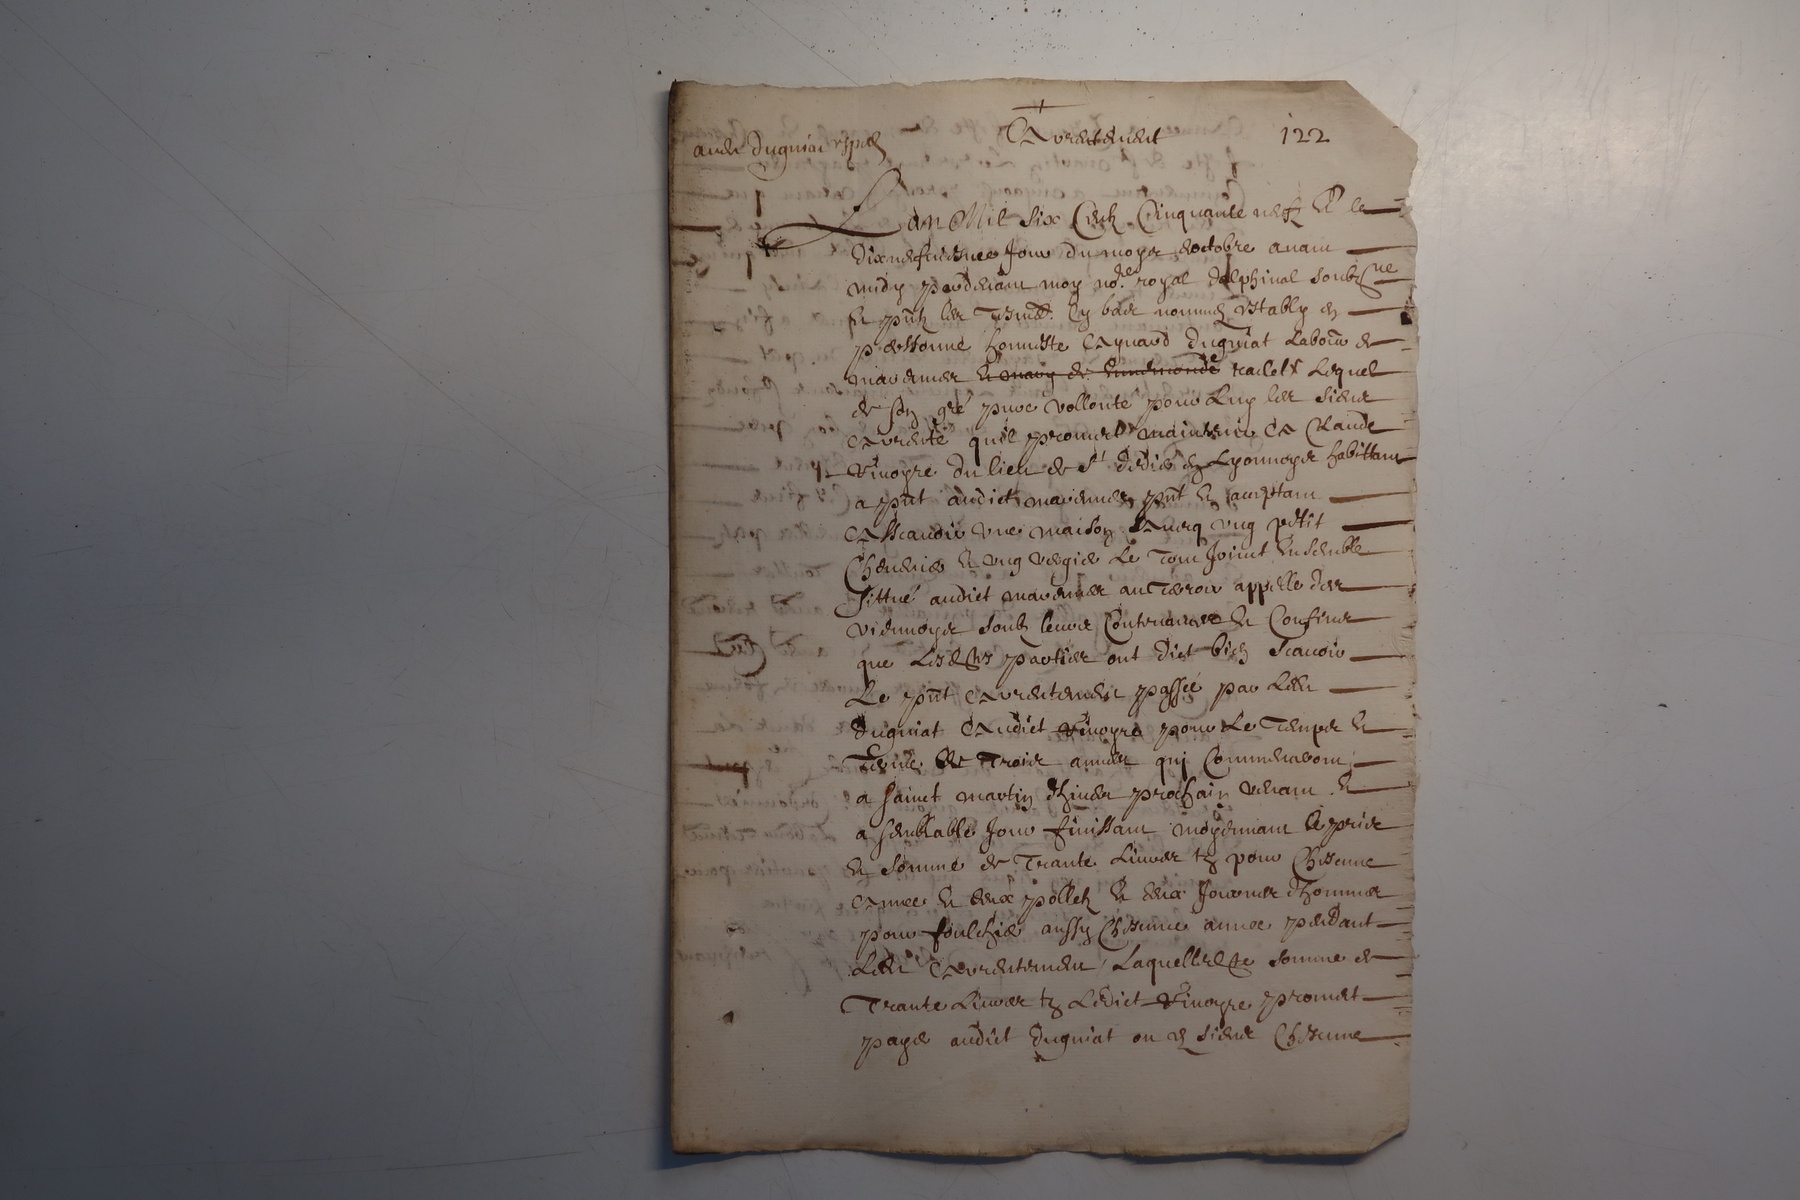 Arrentement
122
Lan Mil Six Centz Cinquante neufz Et le
dixneufviesme Jour du moys doctobre avant
midy pardevant moy no.re royal dalphinal soubz.ne
et pñtz les tesmoings bas nommez Estably en
personne honneste Aynard Duguiat Labour de
marennes racles Lequel
de son gré pure vollonté pour Luy les siens
Arrente quil promet maintenir A Claude
Vinoyre du lieu de St didier en Lyonnoys habittant
a pñt audict marennes pñt et acceptant
Asscavoir une maison Avecq ung petit
Chenevier et ung vergier Le tout Joinct Ensemble
Sittué audict marennes au terroir appelle des
viennoys soubz leurs Contenances et Confins
que Lesdes parties ont dict bien Scavoir
Le pñt Arrentement passé par Led.
duguiat Audict Vinoyre pour Le temps et
terme de trois annees qui Commenceront
a sainct martin dhiver prochain venant et
a semblable Jour finissant moyennant le pris
et somme de trante Livres tz pour Chescune
Annee et deux polletz et deux Journees dhommes
pour foulchier aussy Chescune annee pendant
Led. Arrentement Laquelle de somme de
Trante Livres tz Ledict Vinoyre promet
payer audict duguiat ou es siens Chescune